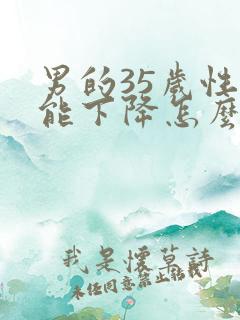 男的35歲性
能下降怎麽
我是懷草詩
未经同意禁止转载